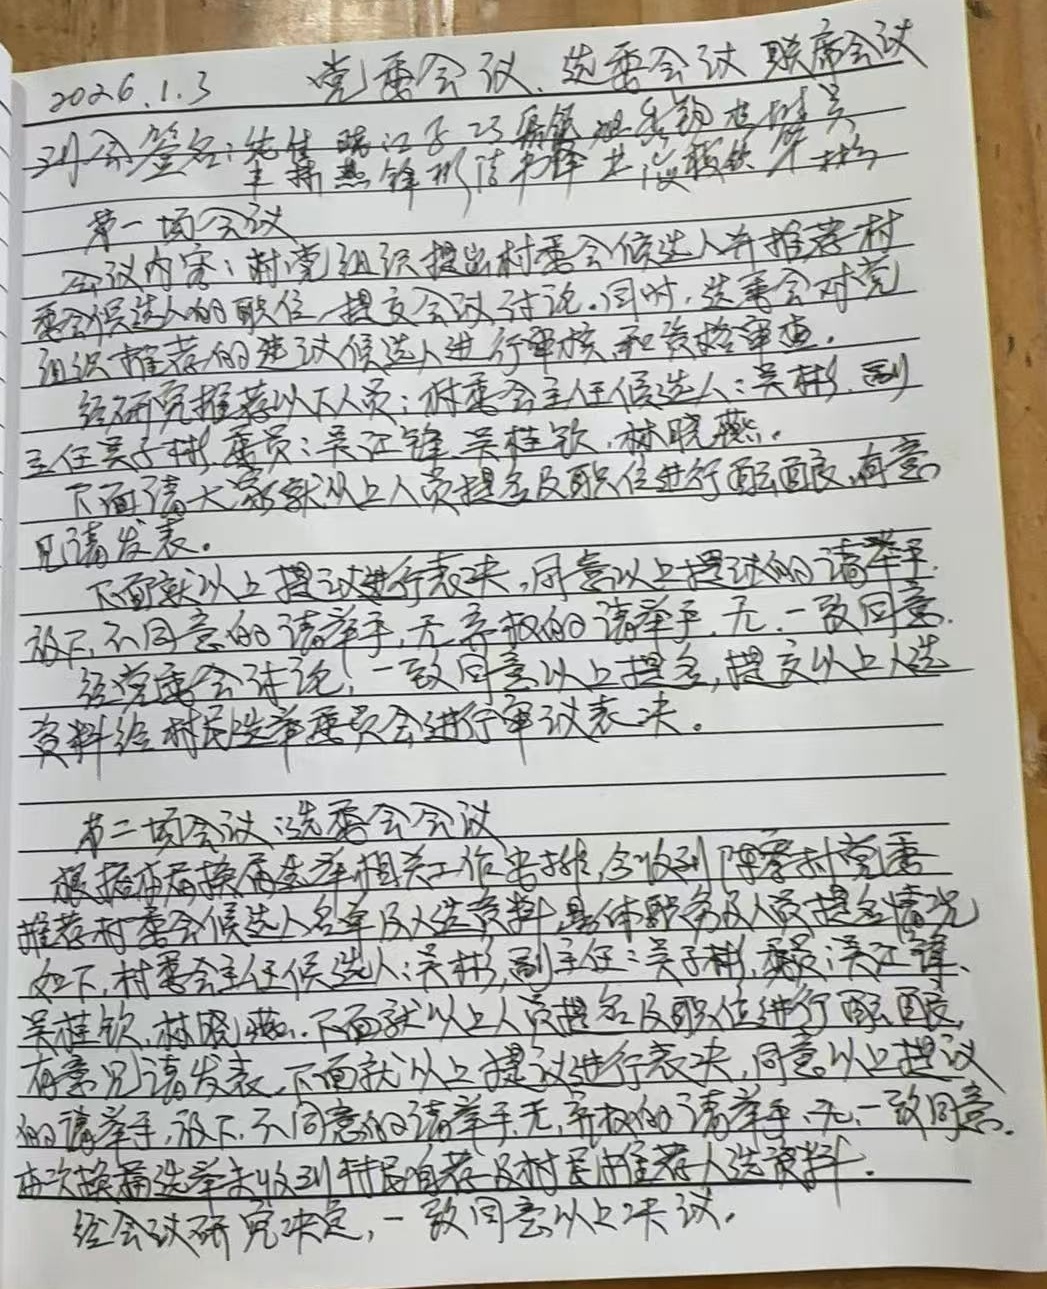 2026.1.3 党委会议、选委会议联席会议
到会签名：
第一项会议
会议内容：村党组织提出村委会候选人并推荐村
委会候选人的职位，提交会议讨论。同时，选委会对党
组织推荐的建议候选人进行审核和资格审查。
经研究推荐以下人员：村委会主任候选人：吴彬，副
主任吴子彬，委员：吴江锋、吴桂钦、林晓燕。
下面请大家就以上人员提名及职位进行酝酿，有意
见请发表。
下面就以上提议进行表决，同意以上提议的请举手，
放下，不同意的请举手，无，弃权的请举手，无，一致同意。
经党委会讨论，一致同意以上提名，提交以上人选
资料给村民选举委员会进行审议表决。
第二项会议：选委会会议
根据换届选举相关工作安排，今收到村党委
推荐村委会候选人名单及人选资料，具体职务及人员提名情况
如下，村委会主任候选人：吴彬，副主任：吴子彬，委员：吴江锋、
吴桂钦、林晓燕。下面就以上人员提名及职位进行酝酿，
有意见请发表，下面就以上提议进行表决，同意以上提议
的请举手，放下，不同意的请举手，无，弃权的请举手，无，一致同意。
本次换届选举未收到村民自荐及村民推荐人选资料。
经会议研究决定，一致同意以上决议。